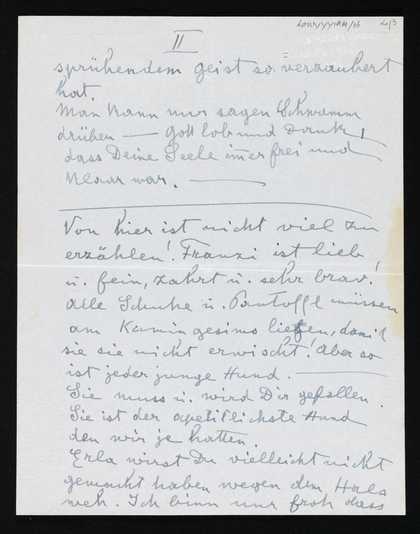 II
4/3
sprühendem geist so verzaubert
hat.
Man kann nur sagen Schwamm
drüben — Gott lob und Dank!
dass Deine Seele immer frei und
klaar war. —
Von hier ist nicht viel zu
erzählen! Franzi ist lieb
u. fein, zahrt u. sehr brav!
Alle Schuhe u. Pantoffl müssen
am Kamin gesims liegen, damit
sie sie nicht erwischt! Aber so
ist jeder junge Hund. —
Sie muss u. wird Dir gefallen.
Sie ist der apetitlichste Hund
den wir je hatten.
Erla wirst Du vielleicht nicht
gemacht haben wegen dem Hals
weh. Ich binn nur froh dass